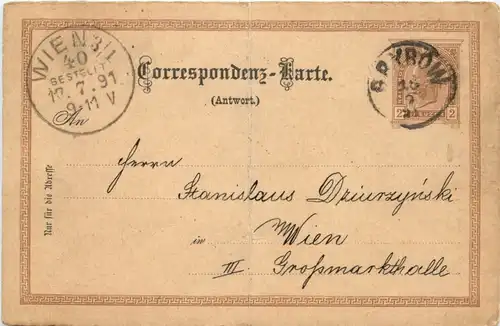 WIEN 3/1
40
BESTELLT
17.7.91
9-11 V
Correspondenz-Karte.
(Antwort.)
GRYBOW
16
7
2 2
An
Herrn
Stanislaus Dziurzyński
in Wien
III Großmarkthalle
Nur für die Adresse